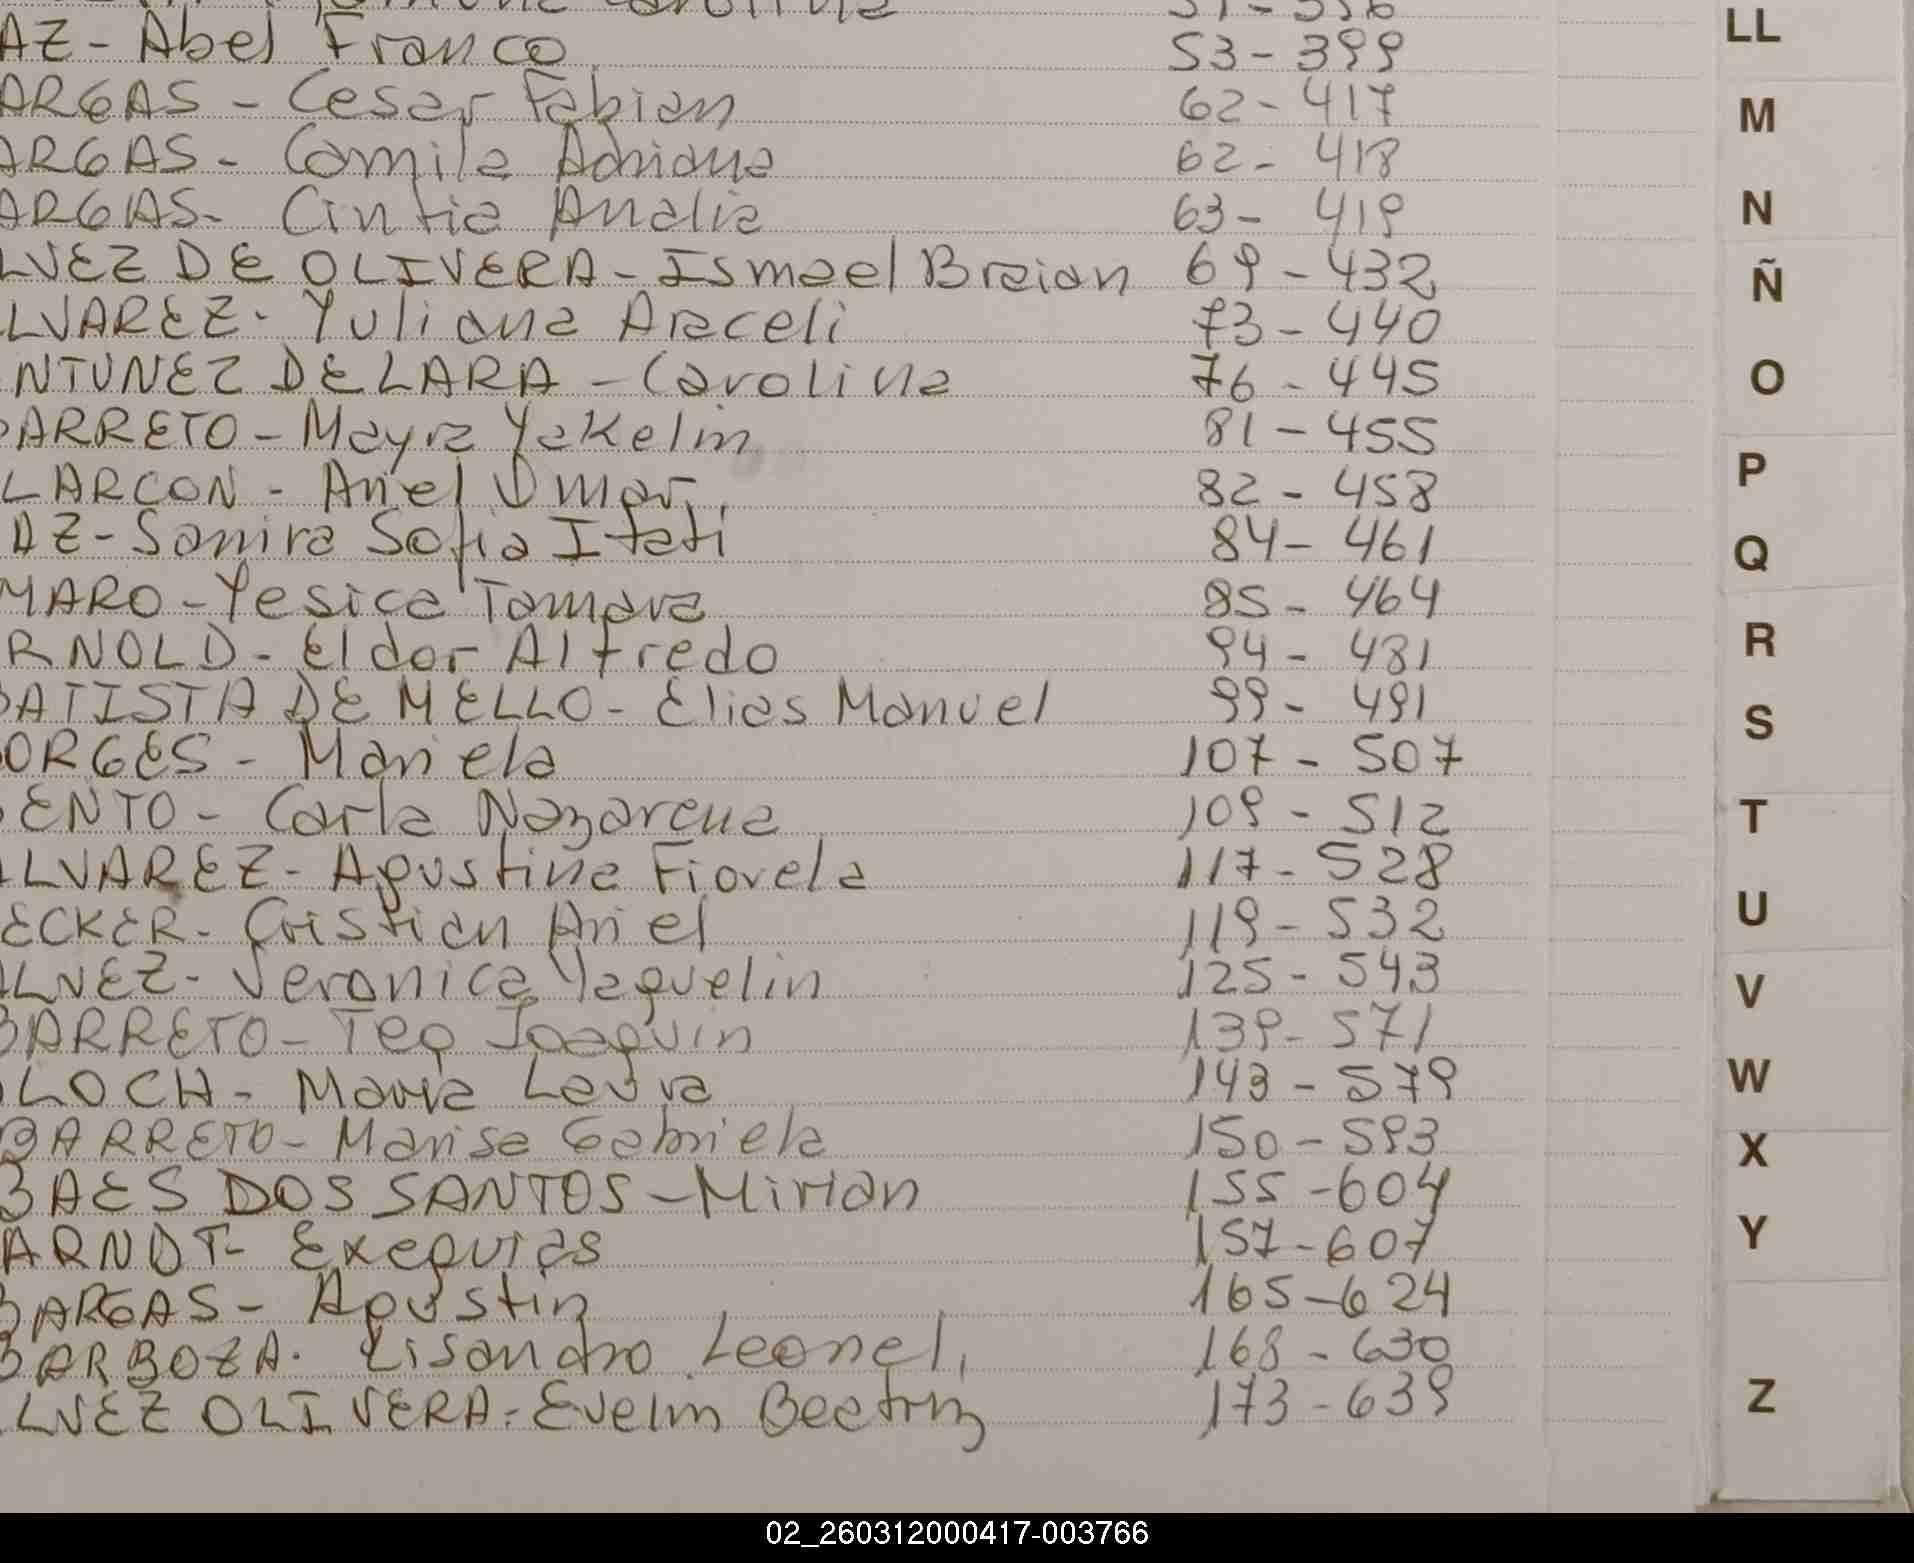 AZ - Abel Franco 53 - 399
ARGAS - Cesar Fabian 62 - 417
ARGAS - Camila Adriana 62 - 418
ARGAS - Cintia Analia 63 - 419
LVEZ DE OLIVERA - Ismael Braian 69 - 432
LVAREZ - Yuliana Araceli 73 - 440
NTUNEZ DE LARA - Carolina 76 - 445
BARRETO - Mayra Yakelin 81 - 455
LARCON - Ariel Omar. 82 - 458
AZ - Samira Sofia Itati 84 - 461
MARO - Yesica Tamara 85 - 464
RNOLD - Eldor Alfredo 94 - 481
BATISTA DE MELLO - Elias Manuel 99 - 491
ORGES - Mariela 107 - 507
ENTO - Carla Nazarena 109 - 512
LVAREZ - Agustina Fiorela 117 - 528
ECKER - Cristian Ariel 119 - 532
ALVEZ - Veronica Yaquelin 125 - 543
BARRETO - Teo Joaquin 139 - 571
LOCH - Maria Laura 143 - 579
BARRETO - Marisa Gabriela 150 - 593
BAES DOS SANTOS - Mirian 155 - 604
ARNDT - Exequias 157 - 607
BARGAS - Agustin 165 - 624
BARBOZA. Lisandro Leonel, 168 - 630
LVEZ OLIVERA - Evelin Beatriz 173 - 639
LL
M
N
Ñ
O
P
Q
R
S
T
U
V
W
X
Y
Z
02_260312000417-003766